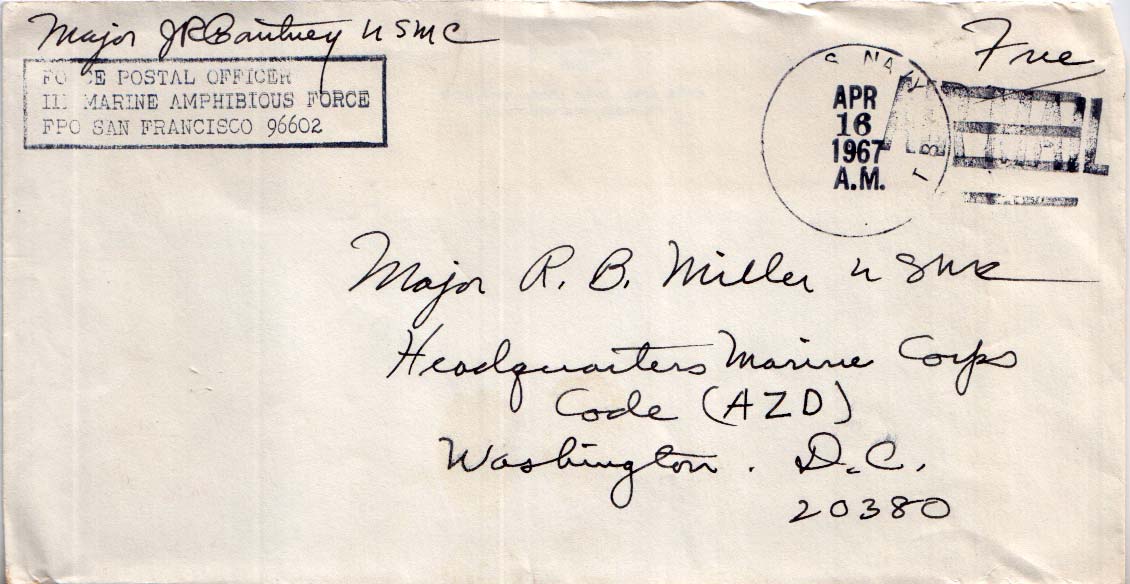 Major JR Gautney USMC
Free
FORCE POSTAL OFFICER
III MARINE AMPHIBIOUS FORCE
FPO SAN FRANCISCO 96602
S. NAVY
APR
16
1967
A.M.
AIR MAIL
Major R. B. Miller USMC
Headquarters Marine Corps
Code (AZD)
Washington. D.C.
20380